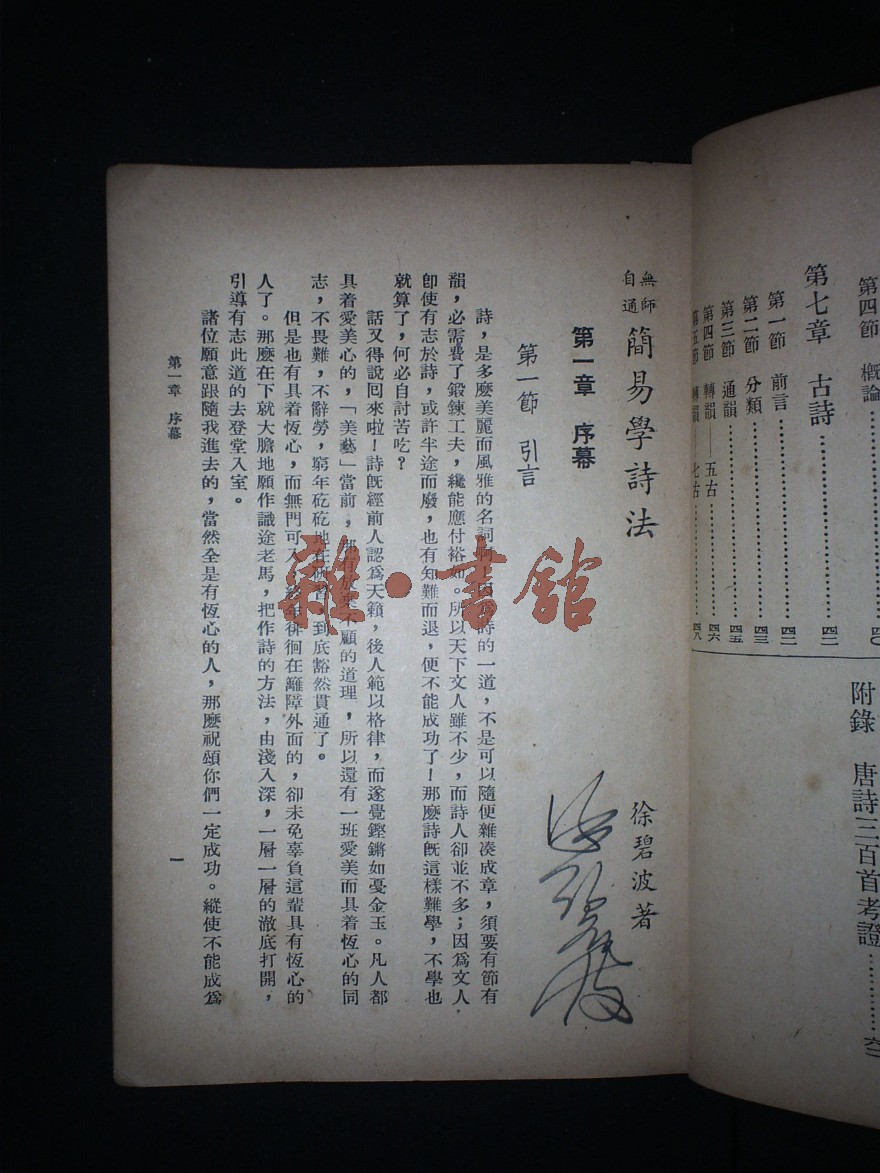 第四節 概論……四〇
第七章 古詩……四二
第一節 前言……四二
第二節 分類……四三
第三節 通韻……四五
第四節 轉韻——五古……四六
第五節 轉韻——七古……四八
附錄 唐詩三百首考證……六二
無師自通 簡易學詩法
徐碧波著
第一章 序幕
第一節 引言
詩，是多麼美麗而風雅的名詞啊！因爲詩的一道，不是可以隨便雜凑成章，須要有節有
韻，必需費了鍛鍊工夫，纔能應付裕如。所以天下文人雖不少，而詩人卻並不多；因爲文人
卽使有志於詩，或許半途而廢，也有知難而退，便不能成功了！那麼詩旣這樣難學，不學也
就算了，何必自討苦吃？
話又得說回來啦！詩旣經前人認爲天籟，後人範以格律，而遂覺鏗鏘如戞金玉。凡人都
具着愛美心的，「美藝」當前，那有放棄不顧的道理，所以還有一班愛美而具着恆心的同
志，不畏難，不辭勞，窮年矻矻地在 到底豁然貫通了。
但是也有具着恆心，而無門可入，終年徘徊在籬障外面的，卻未免辜負這輩具有恆心的
人了。那麼在下就大膽地願作識途老馬，把作詩的方法，由淺入深，一層一層的澈底打開，
引導有志此道的去登堂入室。
諸位願意跟隨我進去的，當然全是有恆心的人，那麼祝頌你們一定成功。縱使不能成爲
第一章 序幕
一
雜·書館